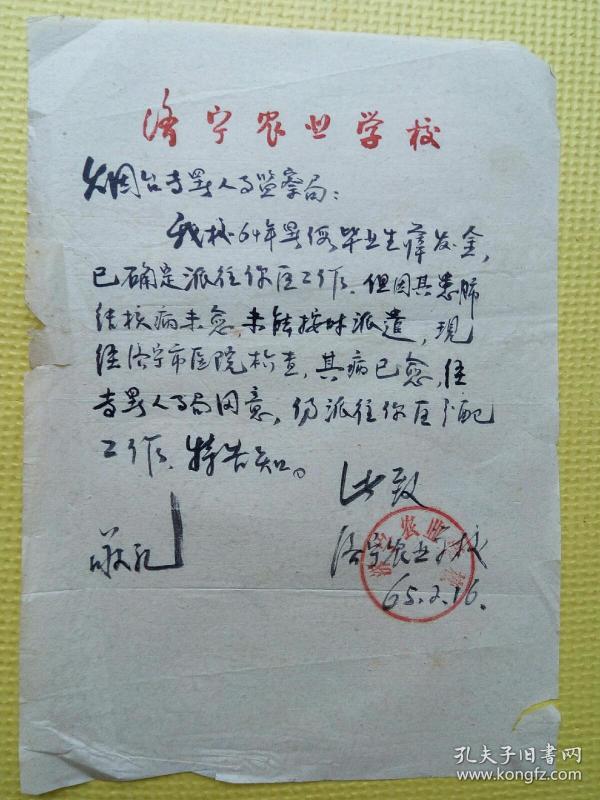 济宁农业学校
烟台专署人事监察局：
我校64年暑假毕业生薛发金，
已确定派往你区工作。但因其患肺
结核病未愈，未能按时派遣，现
经济宁市医院检查，其病已愈，经
专署人事局同意，仍派往你区分配
工作。特告知。
此致
敬礼
济宁农业学校
65.2.16.
孔夫子旧书网
www.kongfz.com